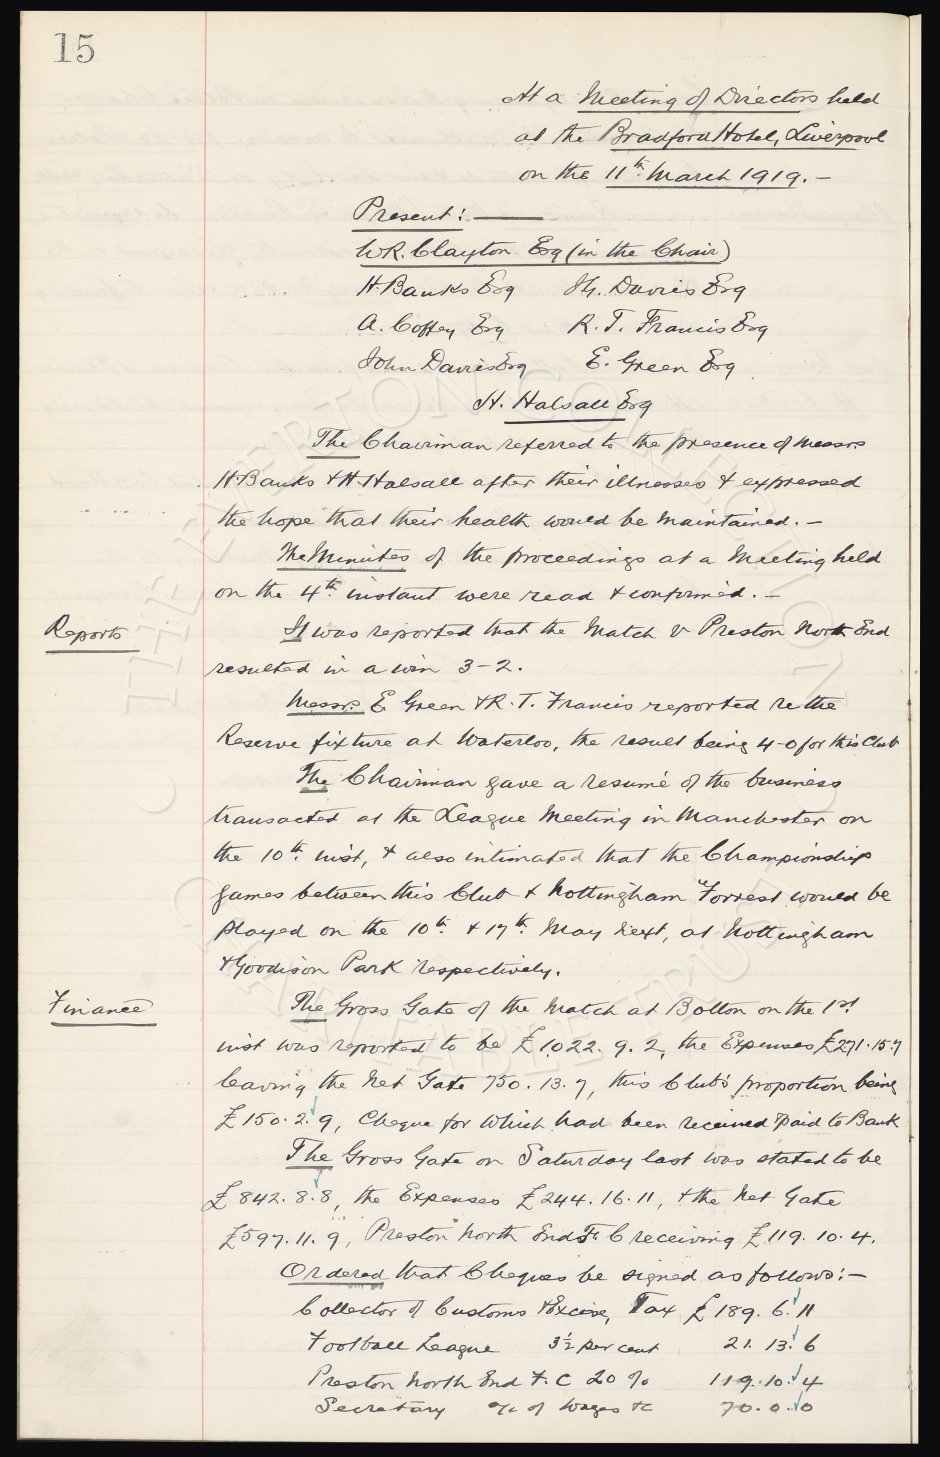 15
At a Meeting of Directors held
at the Bradford Hotel, Liverpool
on the 11th. March 1919. —
Present: —
W.R. Clayton Esq (in the Chair)
H Banks Esq Dr. Davies Esq
A. Coffey Esq R. T. Francis Esq
John Davies Esq E. Green Esq
H. Halsall Esq
The Chairman referred to the presence of Messrs
H Banks & H. Halsall after their illnesses & expressed
the hope that their health would be maintained. —
The Minutes of the proceedings at a Meeting held
on the 4th. instant were read & confirmed. —
Reports
It was reported that the Match v Preston North End
resulted in a win 3-2.
Messrs. E Green & R. T. Francis reported re the
Reserve fixture at Waterloo, the result being 4-0 for this Club
The Chairman gave a resumé of the business
transacted at the League Meeting in Manchester on
the 10th. inst, & also intimated that the Championship
games between this Club & Nottingham "Forrest would be
played on the 10th. & 17th. May next, at Nottingham
& Goodison Park respectively.
Finance
The Gross Gate of the Match at Bolton on the 1st
inst was reported to be £1022. 9. 2, the Expenses £271. 15. 7
leaving the Net Gate 750. 13. 7, this Club's proportion being
£150. 2. 9, Cheque for which had been received & paid to Bank
The Gross Gate on Saturday last was stated to be
£842. 8. 8, the Expenses £244. 16. 11, & the Net Gate
£597. 11. 9, Preston North End F. C receiving £119. 10. 4.
Ordered that Cheques be signed as follows: —
Collector of Customs & Excise, Tax £189. 6. 11
Football League 3½ per cent 21. 13. 6
Preston North End F. C 20 % 119. 10. 4
Secretary a/c of Wages &c 70. 0. 0